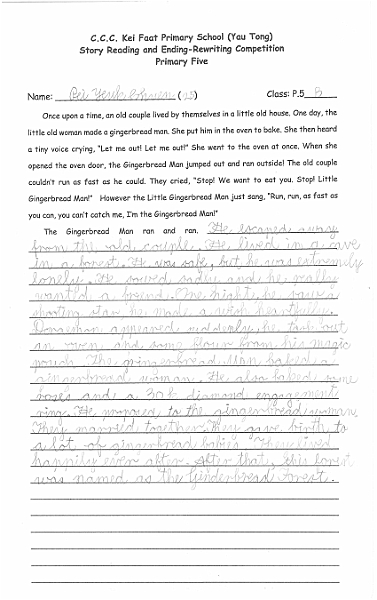 C.C.C. Kei Faat Primary School (Yau Tong)
Story Reading and Ending-Rewriting Competition
Primary Five
Name: (15) Class: P.5 B
Once upon a time, an old couple lived by themselves in a little old house. One day, the
little old woman made a gingerbread man. She put him in the oven to bake. She then heard
a tiny voice crying, "Let me out! Let me out!" She went to the oven at once. When she
opened the oven door, the Gingerbread Man jumped out and ran outside! The old couple
couldn't run as fast as he could. They cried, "Stop! We want to eat you. Stop! Little
Gingerbread Man!" However the Little Gingerbread Man just sang, "Run, run, as fast as
you can, you can't catch me, I'm the Gingerbread Man!"
The Gingerbread Man ran and ran. He escaped away
from the old couple. He lived in a cave
in a forest. He was safe, but he was extremely
lonely. He sadly and he really
wanted a friend. One night, he saw a
shooting star he made a wish heartfully.
Doraemon appeared suddenly, he took out
an oven and some flour from his magic
pouch. The gingerbread Man baked a
gingerbread woman. He also baked some
roses and a 30k diamond engagement
ring. He proposed to the gingerbread woman.
They married together. They gave birth to
a lot of gingerbread babies. They lived
happily ever after. After that, this forest
was named as the Forest.